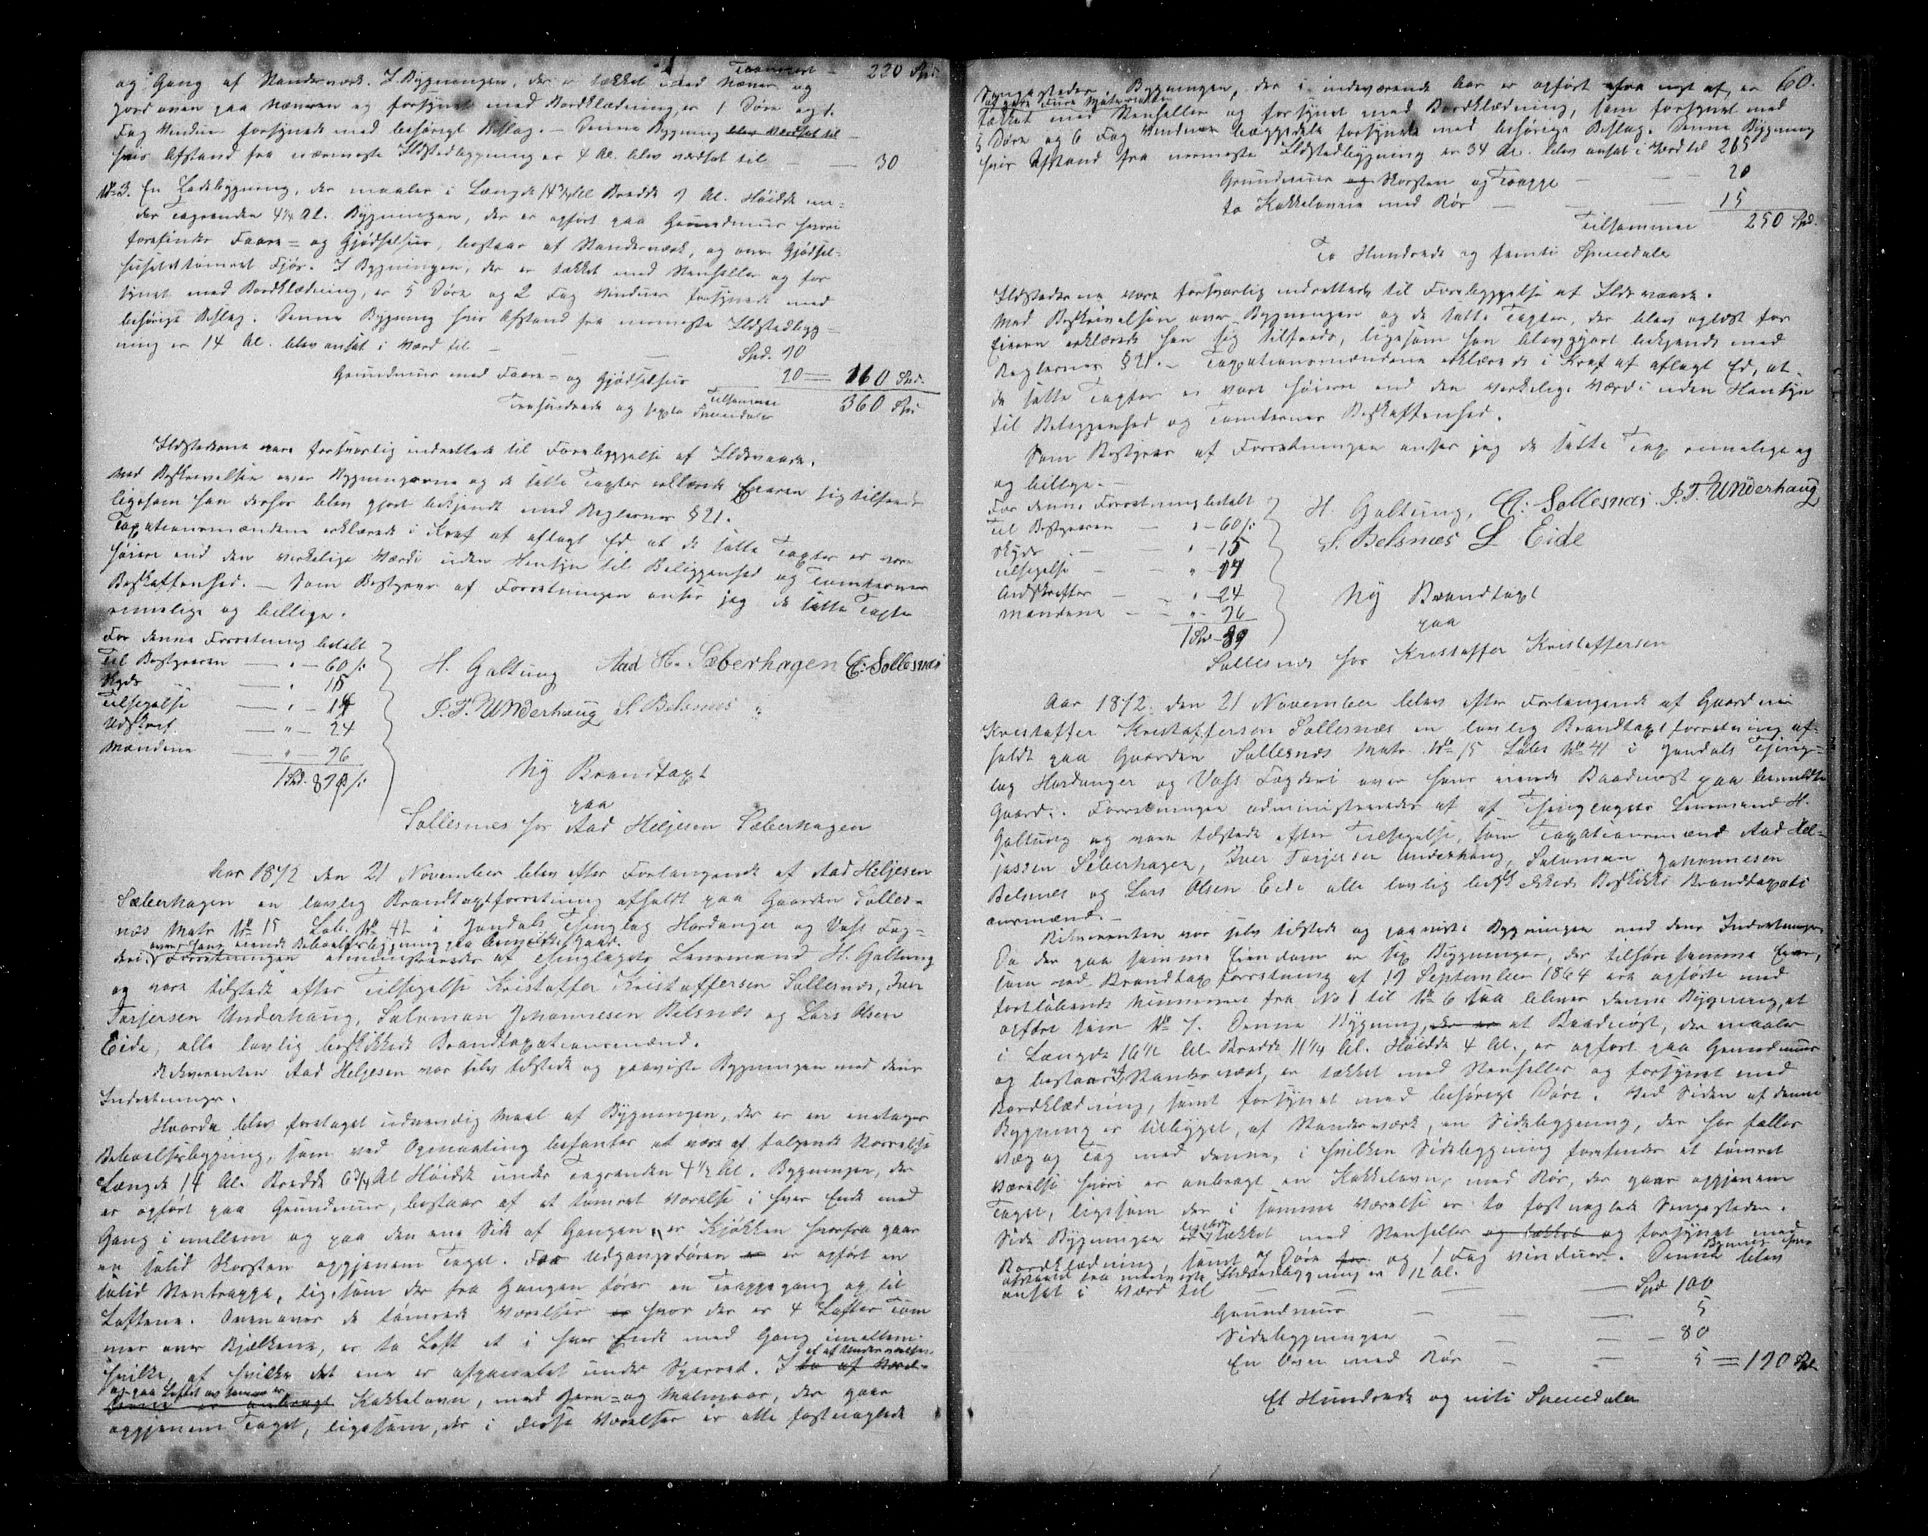 og Gang af Standerværk. I Bygningen, der er tækket med Næver og
Transport – 220 Spd.
Jord oven paa Næveren og forsynet med Bordklædning, er 1 Dør og 1
Fag Vindue forsynede med behørigt Beslag. – Denne Bygning blev værdsat til
hvis Afstand fra nærmeste Ildstedbygning er 4 Al. blev værdsat til — — 30
No 3. En Ladebygning, der maaler i Længde 14¾ Al Bredde 9 Al. Høidde un=
der Tagrenden 4¼ Al. Bygningen, der er opført paa Grundmur hvori
forefindes Faare= og Gjødselhus, bestaar af Standerværk, og over Gjødsel=
huset et tømret Fjøs. I Bygningen, der er tækket med Stenheller og for
synet med Bordklædning, er 5 Døre og 2 Fag Vinduer forsynede med
behørige Beslag. Denne Bygning hvis Afstand fra nermeste Ildstedbyg=
ning er 14 Al. blev ansat i Værd til — — — Spd. 90
Grundmur med Faare= og Gjødselhus 20 = 110 Spd.
Tilsammen 360 Spd
Trehundrede og sexti Speciedaler
Ildstederne vare forsvarlig indrettede til Forebyggelse af Ildsvaade.
Med Beskrivelsen over Bygningerne og de satte Taxter erklærede Eieren sig tilfreds
ligesom han derhos blev gjort bekjendt med Reglernes § 21.
Taxationsmændene erklærede i Kraf af aflagt Ed at de satte Taxter er vare
høiere end den verkelige Værdi uden Hensyn til Beliggenhed og Tomternes
Beskaffenhed. – Som Bestyrer af Forretningen anser jeg de satte Taxter
rimelige og billige.
For denne Forretning betalt
Til Bestyreren — „ – 60 ß:
Skyds — „ 15
Tilsigelse — „ – 14
Udskrift — „ – 24
Mændene — „ – 96
1 Spd. 89 ß:
H. Galtung Aad H. Sæberhagen C. Sollesnæs
I. T. Underhaug S. Belsnæs
Ny Brandtaxt
paa
Sollesnes for Aad Heljesen Sæberhagen
Aar 1872 den 21 November blev efter Forlangende af Aad Heljesen
Sæberhagen en lovlig Brandtaxtforretning afholdt paa Gaarden Solles=
næs Matr No 15 Løb. No 42 i Jondals Thinglag Hardanger og Voss Fog=
over hans eiende Beboelsesbygning paa bemeldte Gaard.
deri. Forretningen administreredes af Thinglagets Lensmand H. Galtung
og vare tilstede efter Tilsigelse Kristaffer Kristaffersen Sollesnæs, Iver
Torjersen Underhaug, Salomon Johannesen Belsnæs og Lars Olsen
Eide, alle lovlig beskikkede Brandtaxationsmænd.
Rekvirenten Aad Heljesen var selv tilstede og paaviste Bygningen med dens
Indretninger.
Hvorda blev foretaget udvendig Maal af Bygningen, der er en enetages
Beboelsesbygning, som ved Opmaaling befantes at være af følgende Størrelse
Længde 14 Al. Bredde 6¾ Al Høidde under Tagrenden 4½ Al. Bygningen, der
er opført paa Grundmur, bestaar af et tømret Værelse i hver Ende med
Gang i mellem og paa den ene Side af Gangen er Kjøkken hvorfra gaar
en solid Skorsten opgjenem Taget. For Udgangsdøren er opført en
solid Stentrappe, ligesom der fra Gangen fører en Trappegang op til
Loftene. Ovenover de tømrede Værelser hvor der er 4 Lofter Tøm
mer over Bjelkene, er to Loft et i hver Ende med Gang imellem.
hvilke, af hvilke det ene er afpanelet under Sperred. I et af Underværelser
og paa Loftet ov samme er
Kakkelovn, med Jern= og Malmrør, der gaar
opgjenem Taget, ligesom, der i disse Værelser er otte fastnaglede
60.
Sengesteder. Bygningen, der i indeværende Aar er opført fra nyt af, er
af gode Furu Materialier
tækket med Stenheller og forsynet med Bordklædning, som forsynet med
5 Døre og 6 Fag Vinduer begge dele forsynet med behørige Beslag. Denne Bygning
hvis Afstand fra nermeste Ildstedbygning er 34 Al. blev ansat i Værd til 215
Grundmur og Skorsten og Trappe — — 20
to Kakkelovne med Rør — — — 15
Tilsammen 250 Spd.
To Hundrede og femti Speciedaler
Ildstederne vare forsvarlig indrettede til Forebyggelse af Ildsvaade.
Med Beskrivelsen over Bygningen og de satte Taxter, der blev oplæst for
Eieren erklærede han sig tilfreds, ligesom han blev gjort bekjendt med
Reglernes § 21. – Taxationsmændene erklærede i Kraf af aflagt Ed, at
de satte Taxter er vare høiere end den verkelige Værdi uden Hensyn
til Beliggenhed og Tomternes Beskaffenhed.
Som Bestyrer af Forretningen anser jeg de satte Tax rimelige og
og billige. –
For denne Forretning betalt
Til Bestyreren — „ – 60 ß:
Skyds — „ – 15
Tilsigelse — „ – 14
Udskrifter — „ – 24
Mændene — „ – 96
1 Spd – 89
H. Galtung, C. Sollesnæs I. T. Underhaug
S. Belsnæs L Eide
Ny Brandtaxt
paa
Sollesnes for Kristaffer Kristaffersen
Aar 1872. den 21 November blev efter Forlangende af Gaardmd
Kristaffer Kristaffersen Sollesnæs en lovlig Brandtaxtforretning af=
holdt paa Gaarden Sollesnæs Matr. No 15 Løbe No 41 i Jondals Thing=
lag Hardanger og Voss Fogderi over hans eiende Baadnøst paa bemeldte
Gaard. Forretningen administreredes af af Thinglagets Lensmand H.
Galtung og vare tilstede efter Tilsigelse, som Taxationsmænd Aad Hel=
jessen Sæberhagen, Iver Torjersen Underhaug, Salomon Johannesen
Belsnæs og Lars Olsen Eide alle lovlig beskikkede Brandtaxati
onsmænd. –
Rekvirenten var selv tilstede og paaviste Bygningen med dens Indretninger
Da der paa samme Eiendom er sex Bygninger, der tilhøre samme Eier,
som ved Brandtaxtforretning af 19 September 1864 ere opførte med
fortløbende Nummere fra No 1 til No 6 saa bliver denne Bygning, at
opføre som No 7. Denne Bygning, et Baadnøst, der maaler
i Længde 16½ Al. Bredde 11¼ Al. Høidde 4 Al., er opført paa Grundmur
og bestaar af Standerværk, er tækket med Stenheller og forsynet med
Bordklædning, samt forsynet med behørige Døre. Ved Siden af denne
Bygning er tilbygget, af Standerværk, en Sidebygning, der har fælles
Væg og Tag med denne, i hvilken Sidebygning forefindes et tømret
Værelse hvori er anbragt en Kakkelovn, med Rør, der gaar opgjenem
Taget, ligesom der i samme Værelse er to fastnaglede Sengesteder.
Side Bygningen ligeledes tækket med Stenheller og tækket og forsynet med
Bordklædning, samt 2 Døre og 1 Fag Vinduer. Denne Bygning hvis
Afstand fra nermeste Ildstedbygning er 12 Al. blev
ansat i Værd til — — — Spd 100
Grundmur — — — 5
Sidebygningen — — — 80
En Ovn med Rør — — 5 = 190 Spd.
Et Hundrede og niti Speciedaler